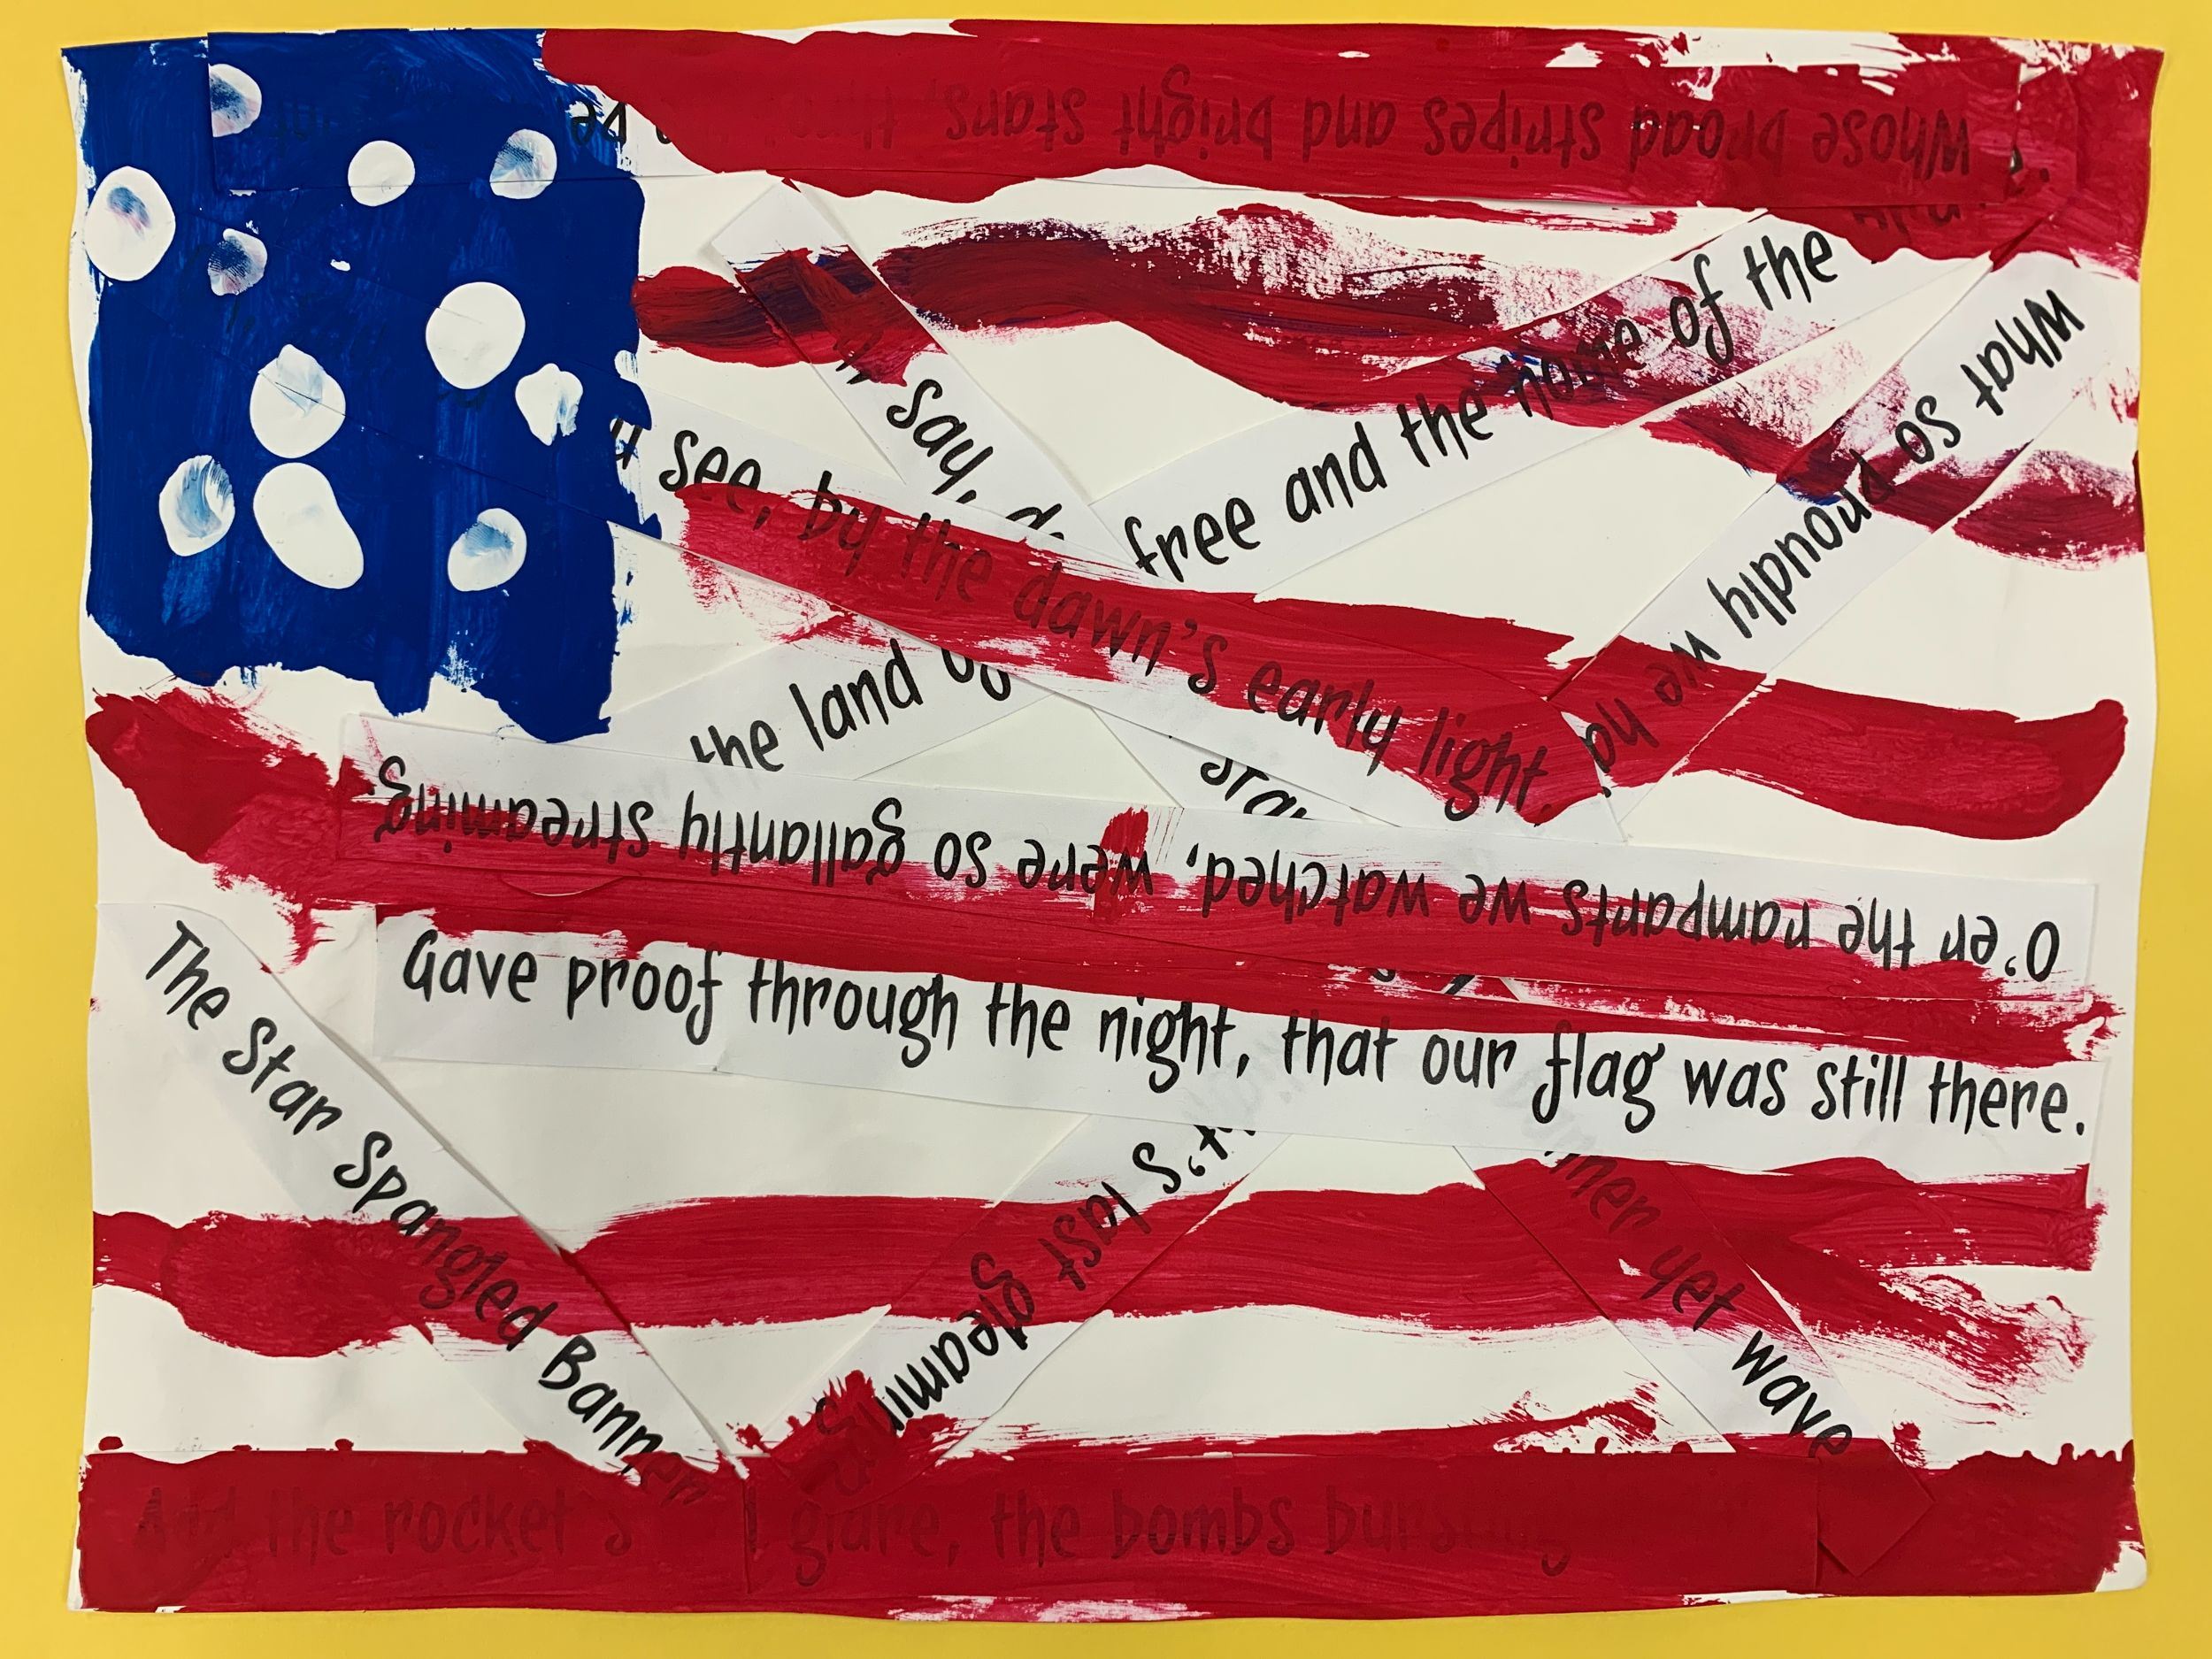 Whose broad stripes and bright stars,
say,
see, by the dawn's early light,
the land
free and the home of the
What so proudly we
O'er the ramparts we watched, were so gallantly streaming.
Gave proof through the night, that our flag was still there.
The Star Spangled Banner
last gleaming
yet wave
And the rocket's glare, the bombs bursting